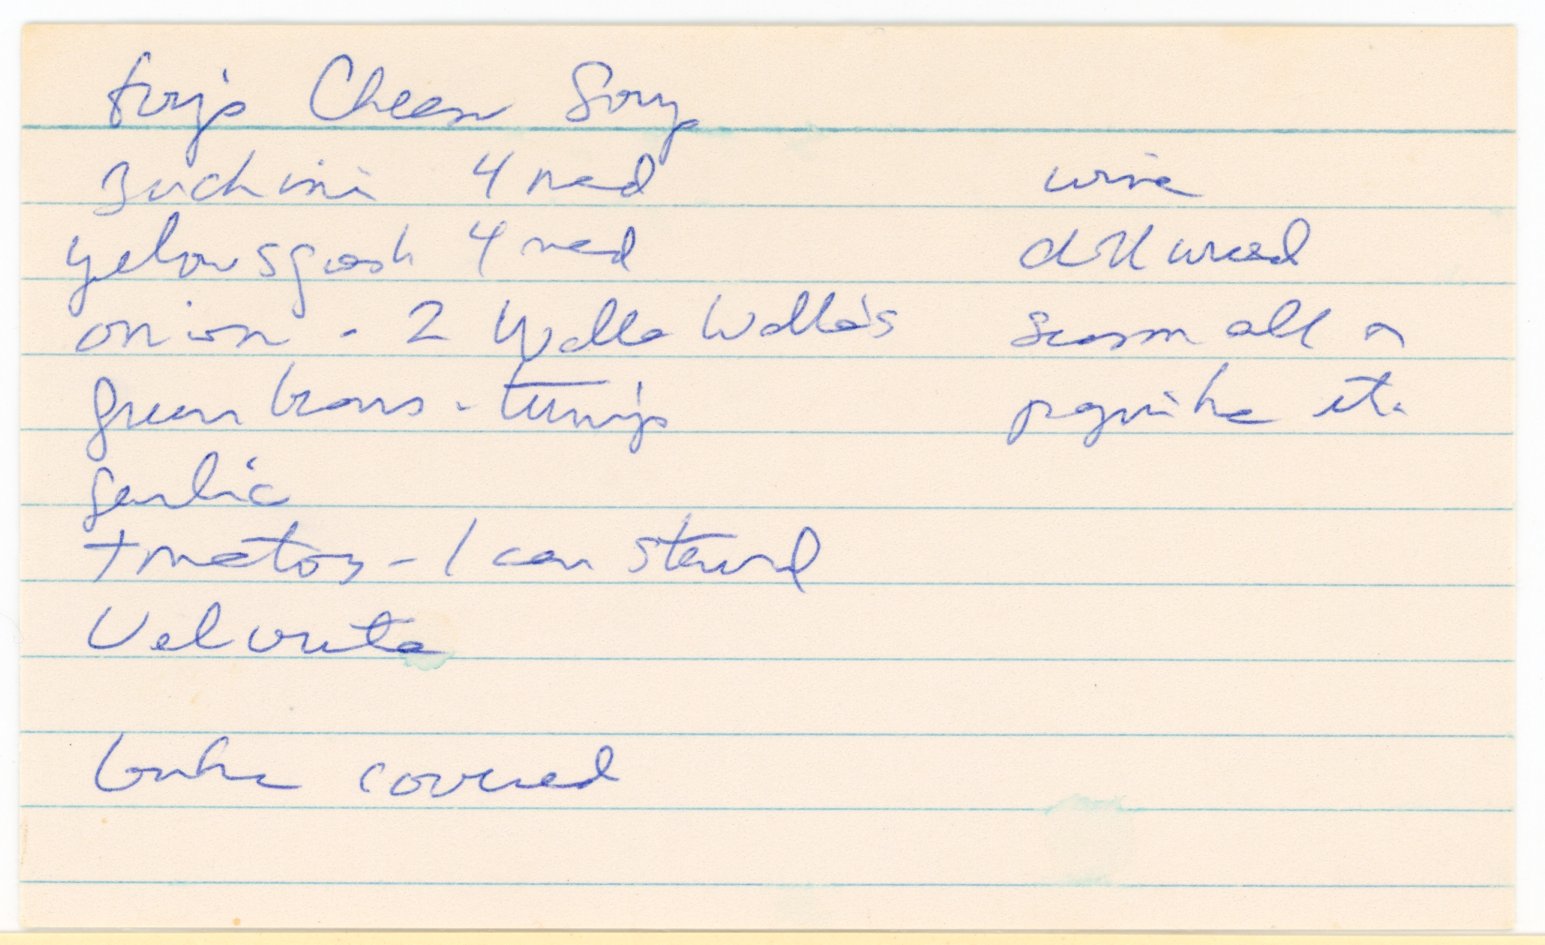 Cheese Soup
Zuchini 4 med
yelow sqash 4 med
onion - 2 Walla Walla's
green beans - turnip
garlic
tomatos - 1 can stewed
Velveeta
bake covered
wine
dill weed
season all or
paprika etc.